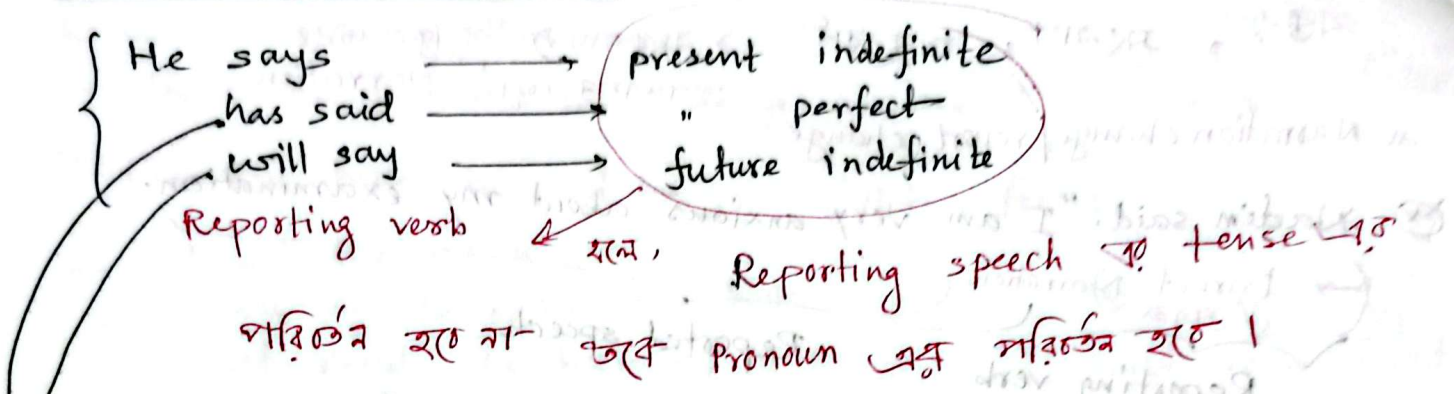 He says → present indefinite
has said → " perfect
will say → future indefinite
Reporting verb হলে, Reporting speech এর tense এর
পরিবর্তন হবে না তবে Pronoun এর পরিবর্তন হবে।